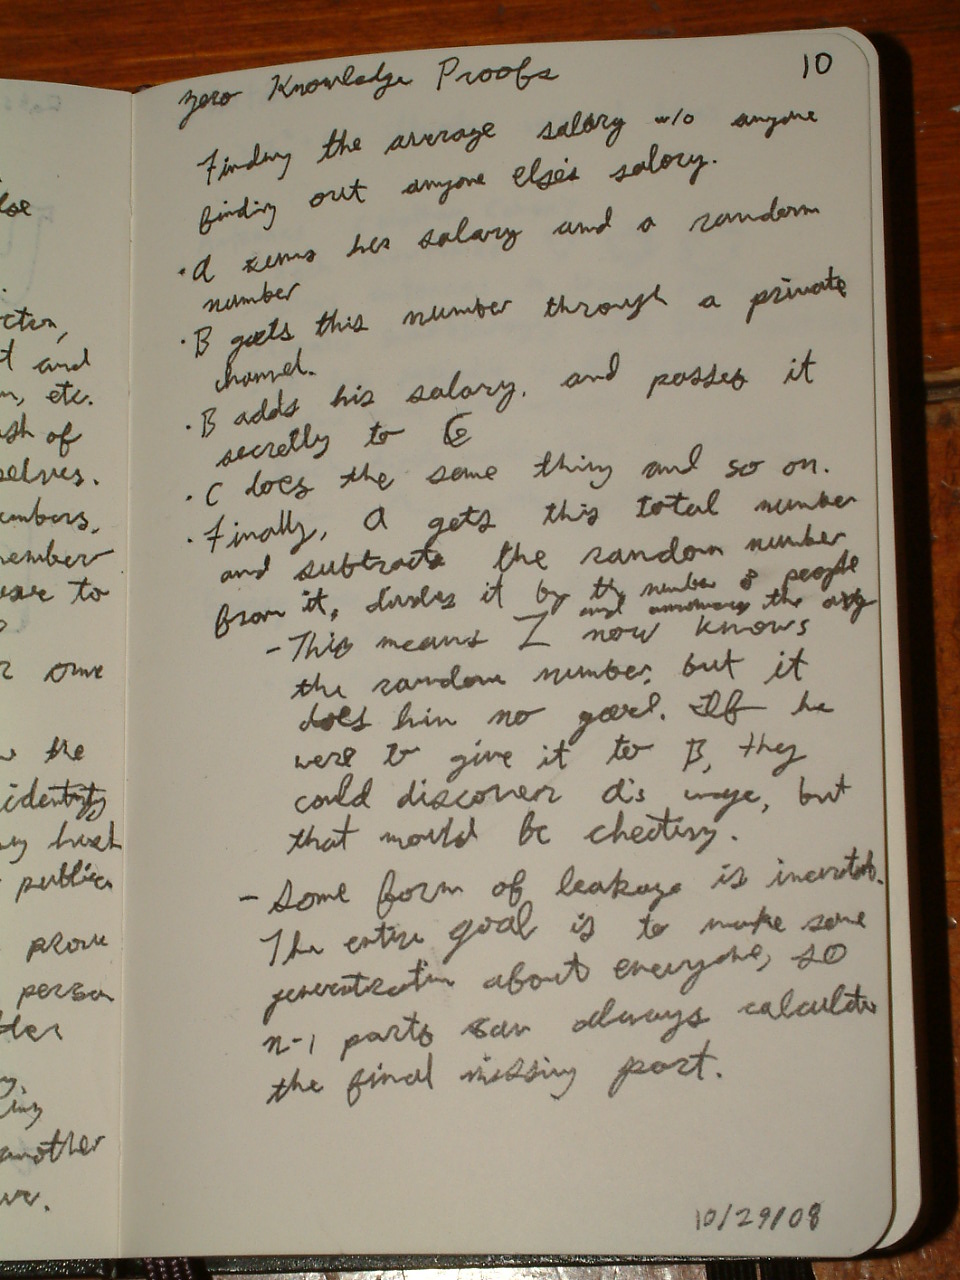 Zero Knowledge Proofs
10
Finding the average salary w/o anyone
finding out anyone else's salary.
· A sums her salary and a random
number
· B gets this number through a private
channel.
· B adds his salary, and passes it
secretly to C
· C does the same thing and so on.
· Finally, A gets this total number
and subtracts the random number
from it, divides it by the number of people
and announces the avg
- This means Z now knows
the random number, but it
does him no good. If he
were to give it to B, they
could discover A's wage, but
that would be cheating.
- Some form of leakage is inevitab.
The entire goal is to make some
generalization about everyone, so
n-1 parts can always calculate
the final missing part.
10/29/08
t and
etc.
of
selves.
to
the
identity
public
prove
person
another